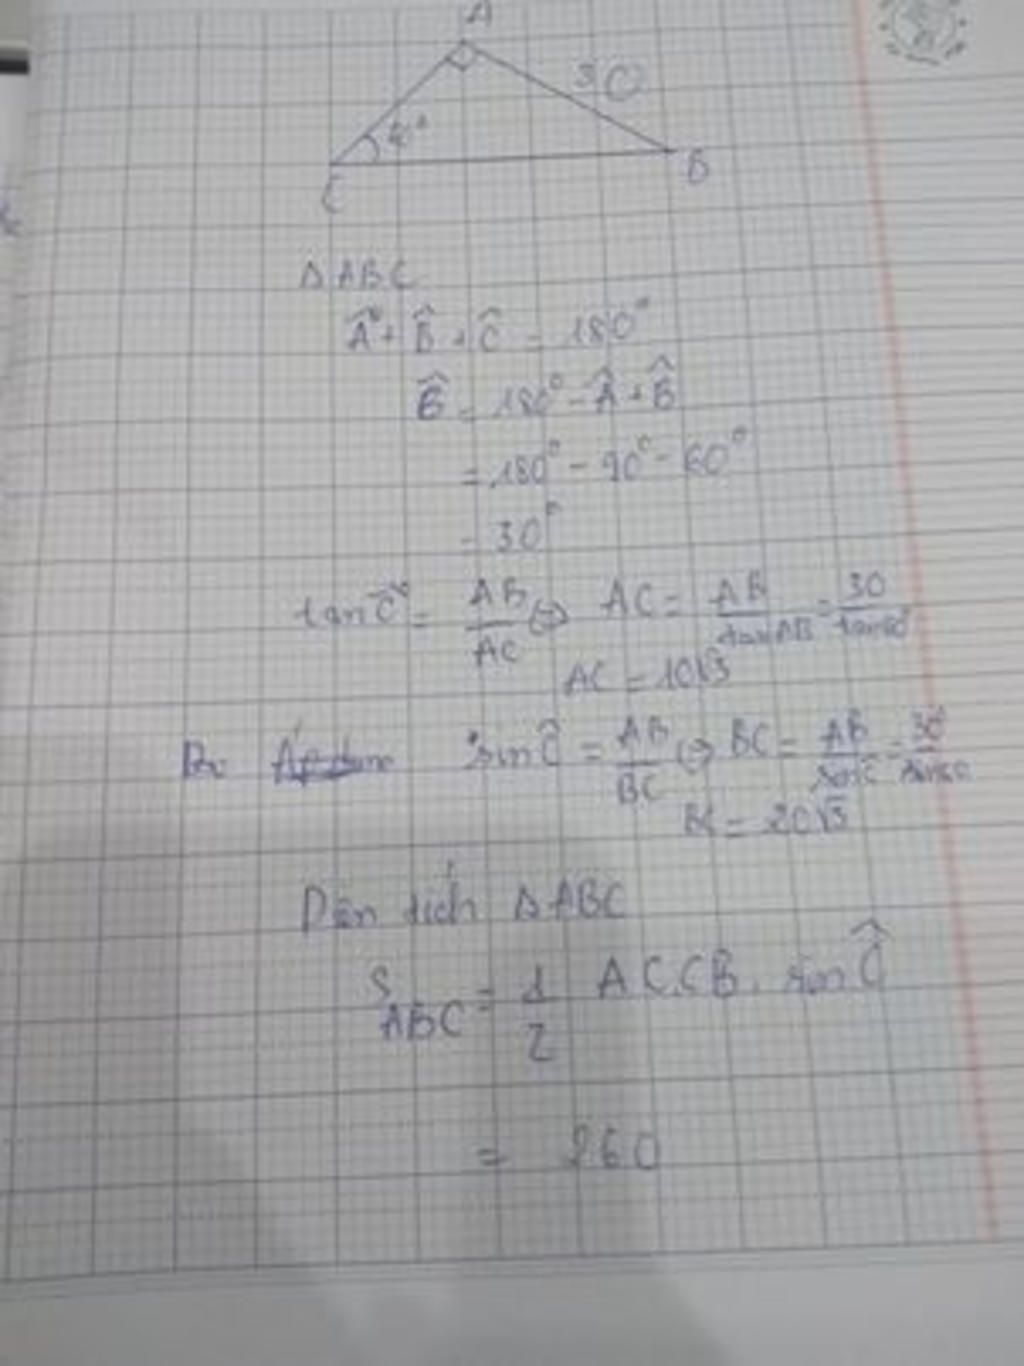 A
30
C
B
Δ ABC
Â + B̂ + Ĉ = 180°
B̂ = 180° - Â + B̂
= 180° - 90° - 60°
= 30°
tan Ĉ = AB/AC ⇔ AC = AB/tan AB = 30/tan60
AC = 10√3
sin Ĉ = AB/BC ⇔ BC = AB/sin Ĉ = 30/sin60
BC = 20√3
Dện tích Δ ABC
S ABC = 1/2 AC.CB. sin Ĉ
= 260